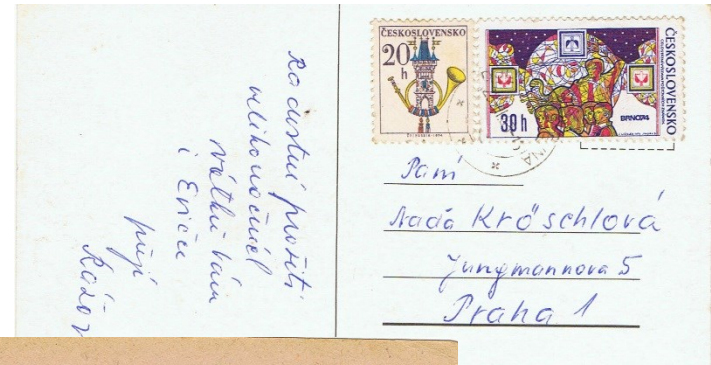 Radostné prožití
velikonočních
svátků Vám
i Evičce
přejí
ČESKOSLOVENSKO
20
h
ČESKOSLOVENSKO
30 h
BRNO74
Paní
Naďa Kröschlová
Jungmannova 5
Praha 1